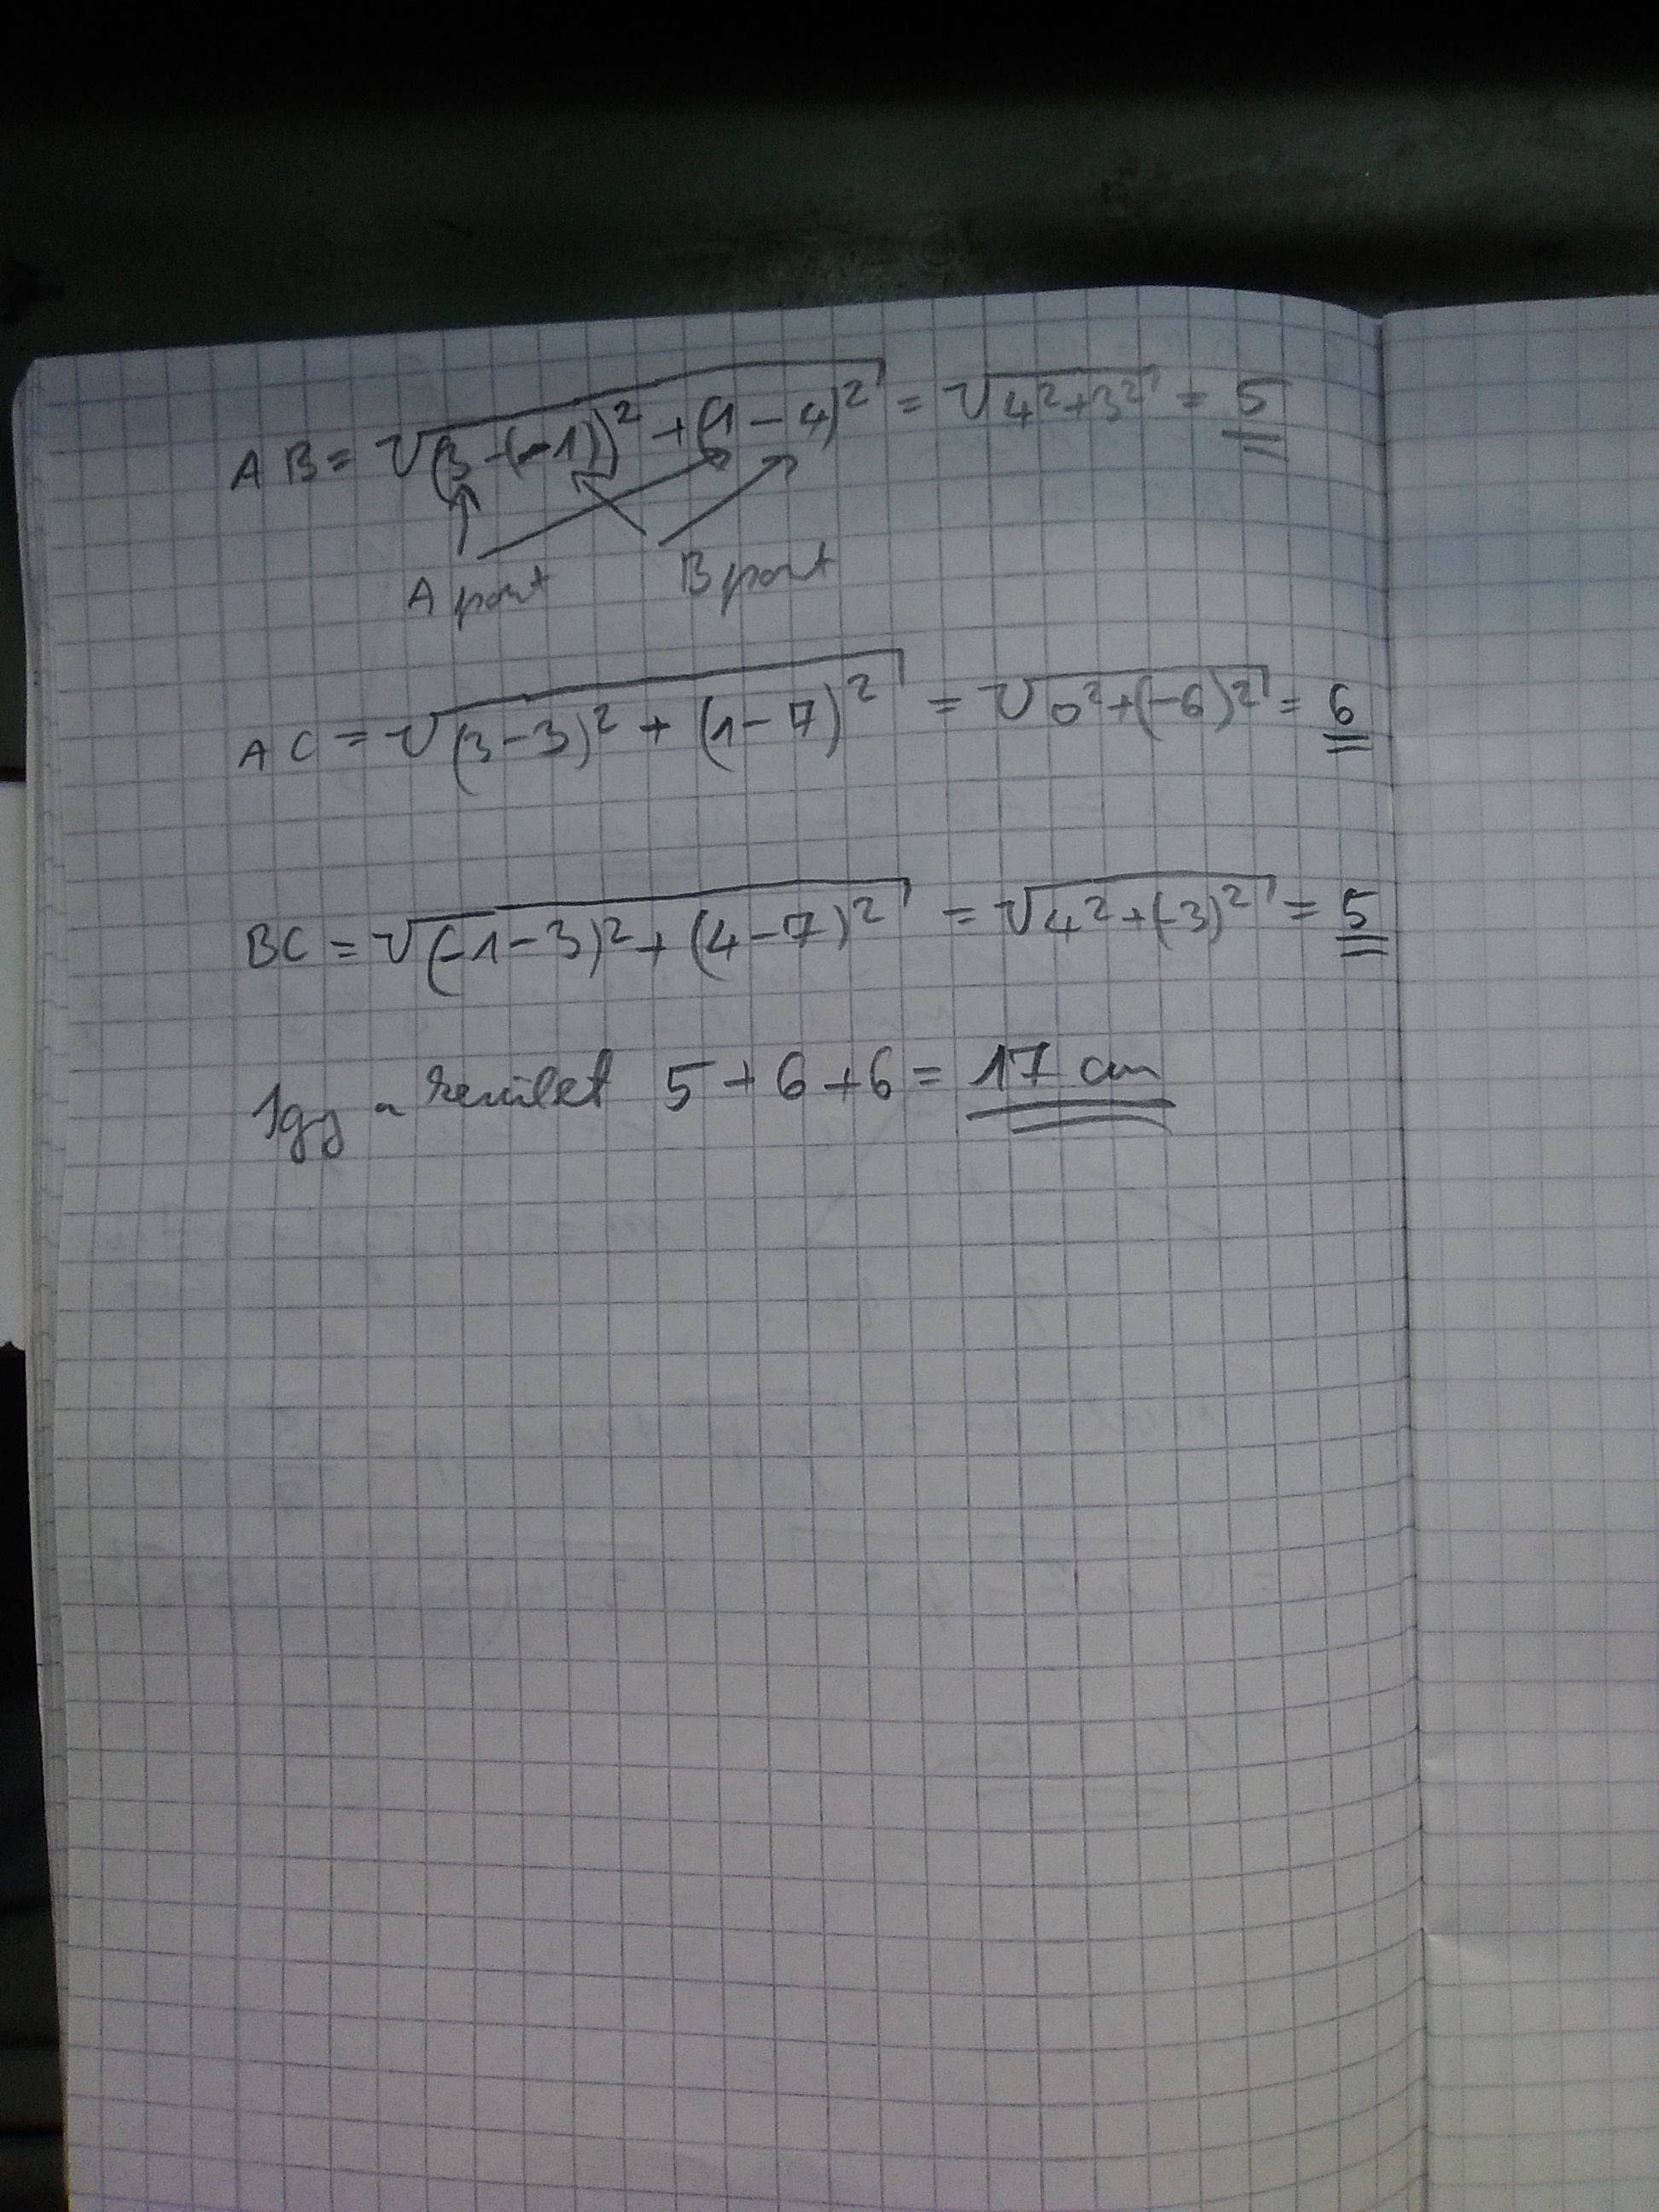 AB = √(3-(-1))² + (1-4)² = √4²+3² = 5
A pont B pont
AC = √(3-3)² + (1-7)² = √0²+(-6)² = 6
BC = √(-1-3)² + (4-7)² = √4²+(-3)² = 5
Így a kerület 5+6+6 = 17 cm